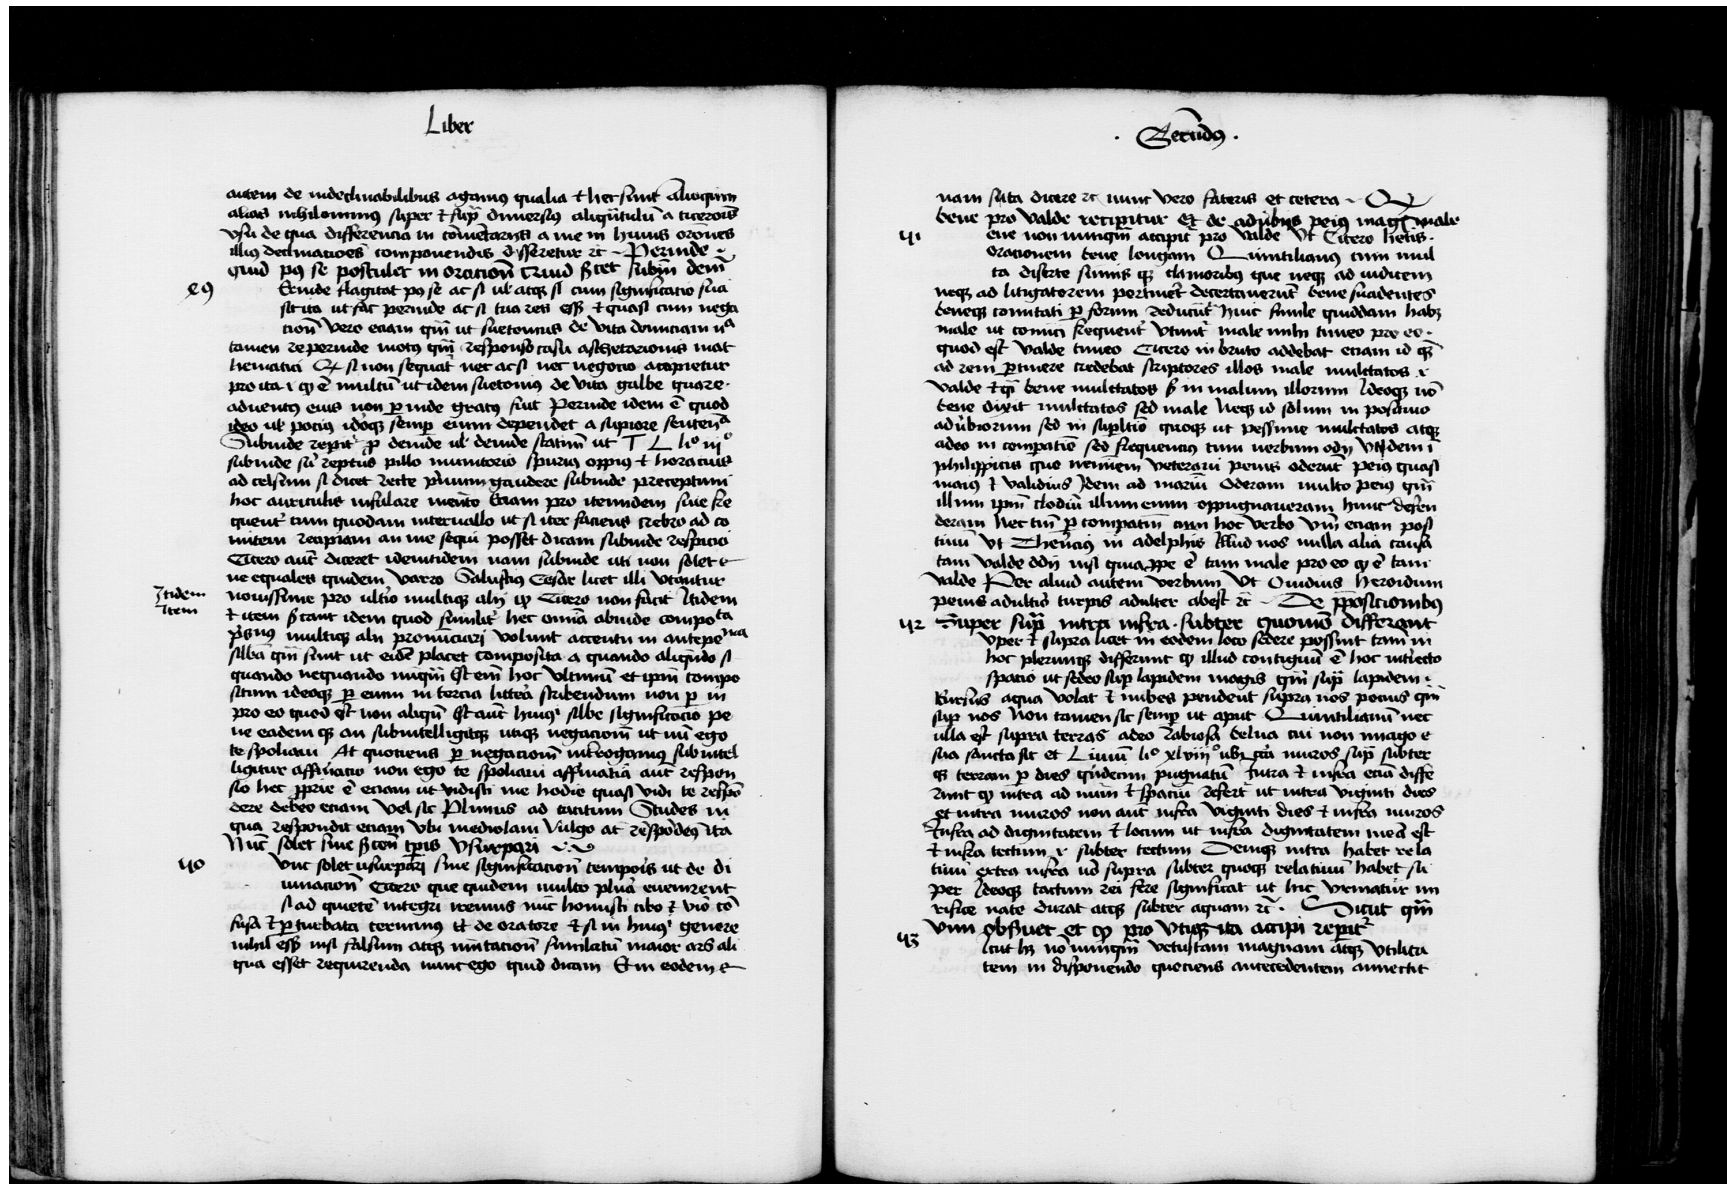 Liber
autem de indeclinabilibus agamus qualia ⁊ hec sunt alioquin
alias nihilominus super ⁊ supra diuersius aliquantulum a ciceronis
vsu de qua differencia in comētarijs a me in huius
illius declinacões componendis disseretur ⁊c Perinde
quid postulet in oracionē
e9
Erinde flagitat post se ac si vel atqȝ si cum significatio sua
sit ita ut fac perinde ac si tua res esset ⁊ quasi cum nega
cionē vero eciam qm̄ ut suetonius de vita domiciani
tamen reperinde motus qm̄ responso casu ascletarionis mat
hematici si non sequat nec ac si nec negocio accipietur
pro ita ē multū ut idem suetonius de vita galbe quare
aduentus eius non perinde gratus fuit Perinde idem ē quod
ideo vel pocius idoqȝ semper enim dependet a supiore
Subinde repit deinde vel deinde statim ut T L lio iijo
subinde pillo munitorio spurius oppius ⁊ horacius
ad celsum si dicet recte primum gaudere subinde preceptum
hoc auriculis instillare mento Eciam pro itemdem siue fre
quent cum quodam interuallo ut si iter faciens crebro ad co
mitem recipiam an me sequi posset dicam subinde respicio
Cicero aut diceret identidem nam subinde uti non solet
ne equales quidem varro Salustius Cesar licet illi vtantur
Itidem
Item
nouissime pro ultio multiqȝ alij Cicero non facit Itidem
⁊ item idem quod similit hec omīa abinde
multiqȝ alij pronunciari volunt accentu in
silbā qm̄ sunt ut eidē placet composita a quando aliqūdo si
quando nequando nūqm̄ Est em hoc vltimū et ipm compo
situm ideoqȝ per enim in tercia littera scribendum non per in
pro eo quod est non aliqn Est aut huiꝰ silbe significatio pe
ne eadem an subintelligitqȝ utiqȝ negacionē ut nū ego
te spoliaui At quociens per negacionē introgamus subintel
ligitur affirmacio non ego te spoliaui affirmatiā aut respon
sio hec pprie ē eciam ut vidisti me hodie quasi vidi te respō
dere debeo eciam vel sic Plinius ad tacitum Studes in
qua respondit eciam vbi mediolani Vulgo at respōdes ita
Nūc solet sine vsurpari
40
Vnc solet usurpari sine significacionē tempois ut de di
uinacionē Cicero que quidem multo plura euenirent
si ad quietē integri iremus nūc honusti cibo ⁊ vio cō
fusa ⁊ perturbata cernimus Et de oratore ⁊ si in huius genere
nihil esset nisi falsum atqȝ imitacionē similatū maior ars ali
qua esset requirenda nunc ego quid dicam Et in eodem
· Secūdus ·
nam futa dicere ⁊c nunc vero fateris et cetera
bene pro valde recipitur Et de aduerbijs peius magis male
41
ene non nunqm̄ accipit pro valde Vt Cicero
oracionem bene longam Quintilianus cum mul
ta diserte summis qȝ clamoribus que neqȝ ad iudicem
neqȝ ad litigatorem pertinet decertauerūt bene suadentes
beneqȝ comitati per forum reducūt huic simile quiddam habȝ
male ut comici frequent vtunt male mihi timeo pro eo
quod est valde timeo Cicero in bruto addebat eciam id
ad rem pertinere credebat scriptores illos male mulctatos
valde ⁊ bene mulctatos in malum illorum Ideoqȝ nō
bene dixit mulctatos sed male Neqȝ id solum in positiuo
aduerbiorum sed in suplatīo quoqȝ ut pessime mulctatos atqȝ
adeo in compatīē sed frequencius cum verbum odij Vt idem ī
philippicis que neminem veterani peius oderūt peius quasi
maius ⁊ validius Idem ad marium Oderam multo peius qm̄
illum ipm clodiū illum enim oppugnaueram hunc defen
deram hec tm̄ per compatiū cum hoc verbo Vm̄ eciam posi
tiuū Vt Therēcius in adelphis Illud nos nulla alia causa
tam valde odij nisi quia ppe ē tam male pro eo ē tam
valde Per aliud autem verbum Vt Ouidius heroidum
peius adulterio turpis adulter abest ⁊c De pposicionibus
42
Super supra intra infra subter quomō differant
Vper ⁊ supra licet in eodem loco sedere possint tam in
hoc plerunqȝ differunt illud contiguū ē hoc intiecto
spacio ut sedeo sup lapidem magis qm̄ supra lapidem
Rursus aqua volat ⁊ nubes pendent supra nos pocius qm̄
sup nos Non tamen sic semper ut aput Quintilianum nec
ulla est supra terras adeo rabiosa belua cui non imago
sua sancta sit et Liuiū lio xlviijo muros sup subter
qȝ terram per dies quidecim pugnatū Intra ⁊ infra eciā diffe
runt intra ad num ⁊ spaciū refert ut intra viginti dies
et intra muros non aut infra viginti dies ⁊ infra muros
Infra ad dignitatem ⁊ locum ut infra dignitatem meā est
⁊ infra tectum subter tectum Deniqȝ intra habet rela
tiuū extra infra supra subter quoqȝ relatiuū habet su
per Ideoqȝ tactum rei fere significat ut hic
nate durat atqȝ subter aquam ⁊c Sicut qm̄
Vim obsruet et pro Vtiqȝ ita accipi repit
43
Icut hȝ nō nunqm̄ vetustam magnam atqȝ vtilita
tem in disponendo quociens antecedentem annectit